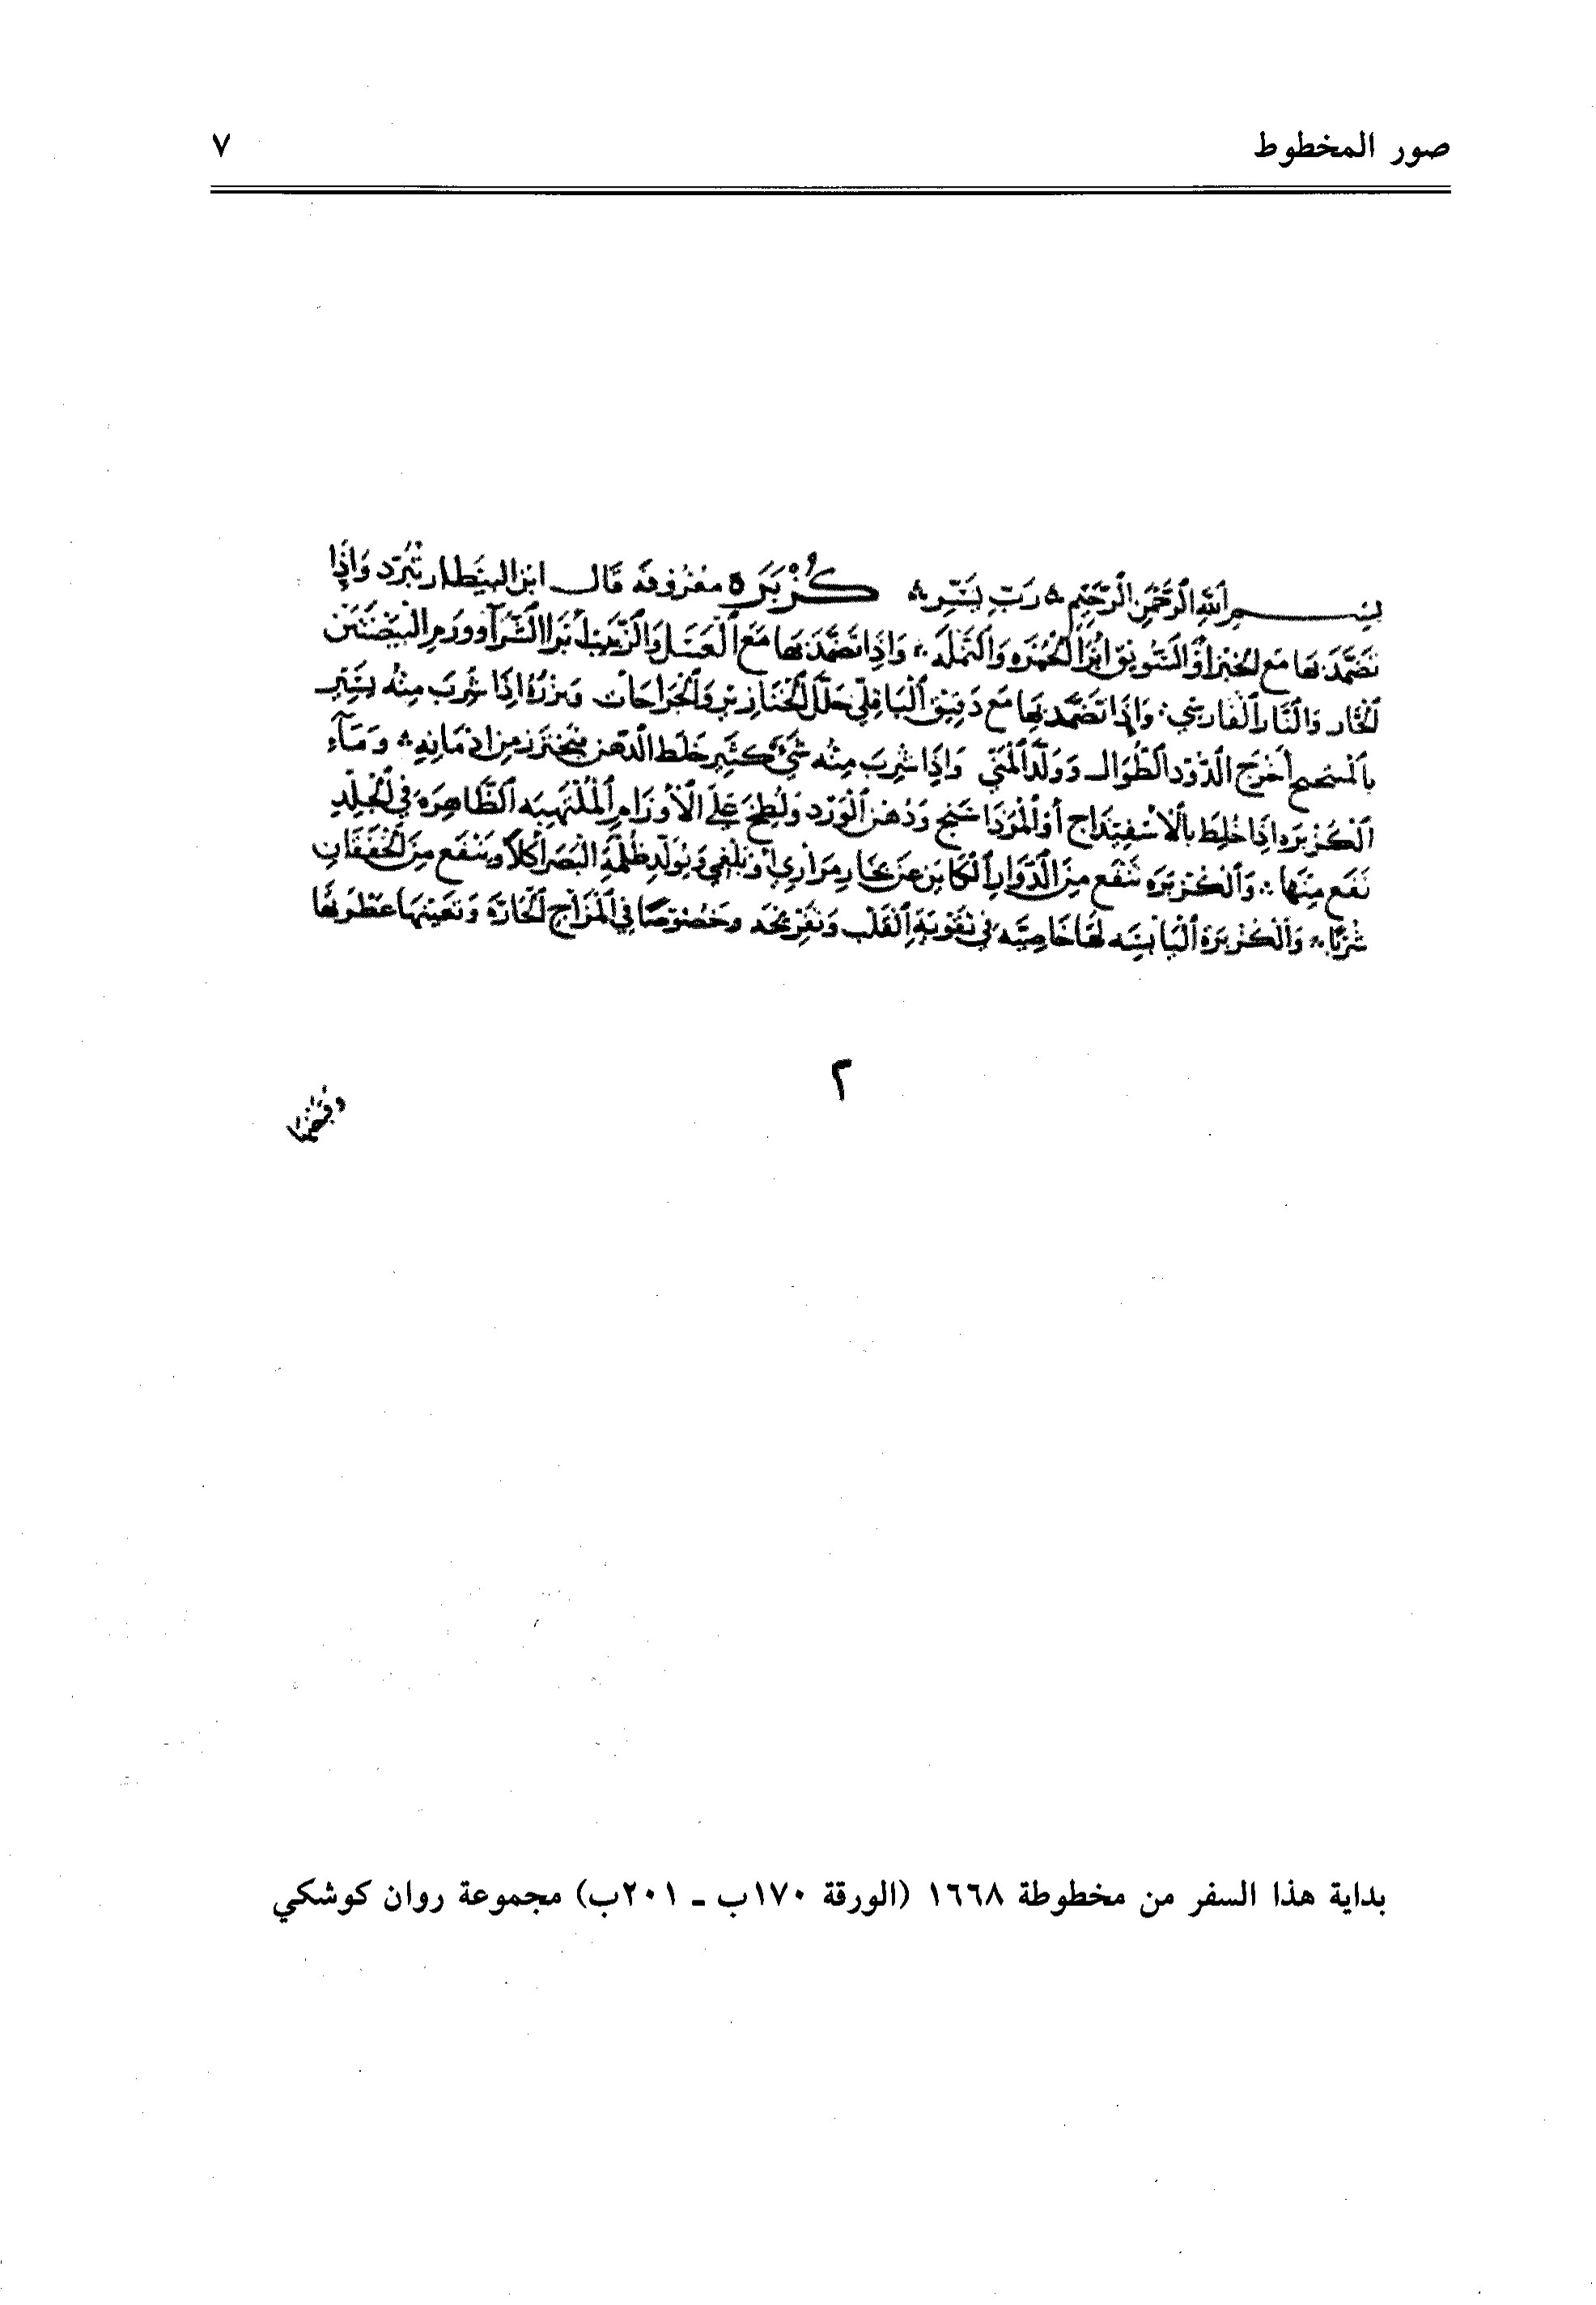 صور المخطوط ٧
بسم الله الرحمن الرحيم رب يسر كُزْبَرَه معروفة قال ابن البيطار تُبرّد وَإِذَا
تضمّدَ بها مَع الخبز أو السَّويق ابرا الحُمْرَه وَالنَّملَه وَاذا تضمَّدَ بها مَع العسَل والزّيت أبرا الشرآ وورم البيضتين
الحار وَالنَّار الفارسي وَاذا تضمّد بها مَع دقيق الباقلي حلّل الخنازير والجراحات وبزره إذا شرب منه يسير
بالمبختج أخرج الدّود الطّوال وولّد المني وَإِذا شرب منه شيء كثير خلط الذهن فيتحترز من ادمانه وَمآء
الكزبره اذا خلط بالاسفيداج أو المرداسنج ودهن الورد ولُطِخ على الأورام الملتهبه الظاهره في الجلد
نفع منها وَالكزبرَه تنفع من الدّوار الكاين عن بخار مراري أو بلغمي ويولّد ظلمة البصر أكلاً وتنفع من الخفقان
شربًا وَالكزبرة اليابسه لها خاصيّه في تقوية القلب وتفريحه وخصوصًا في المزاج الحارّة وتعينها عطريّتها
٢
وقبضها
بداية هذا السفر من مخطوطة ١٦٦٨ (الورقة ١٧٠ب ـ ٢٠١ب) مجموعة روان كوشكي